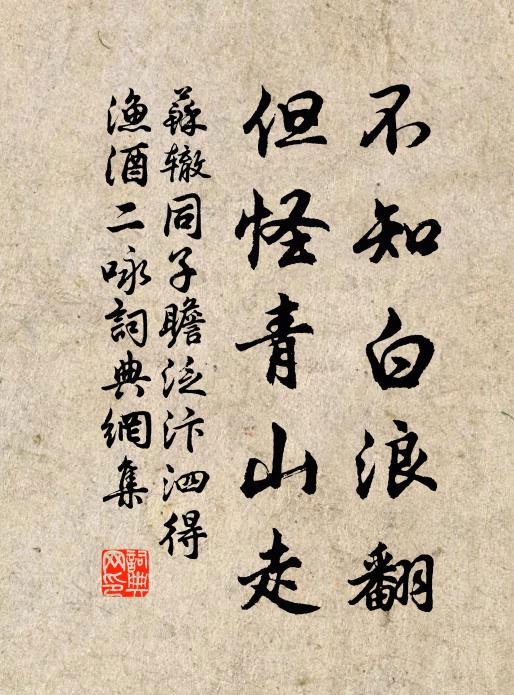 不知白浪翻
但怪青山走
蘇轍同子瞻泛汴泗得
漁酒二咏詞典網集
詞典網印